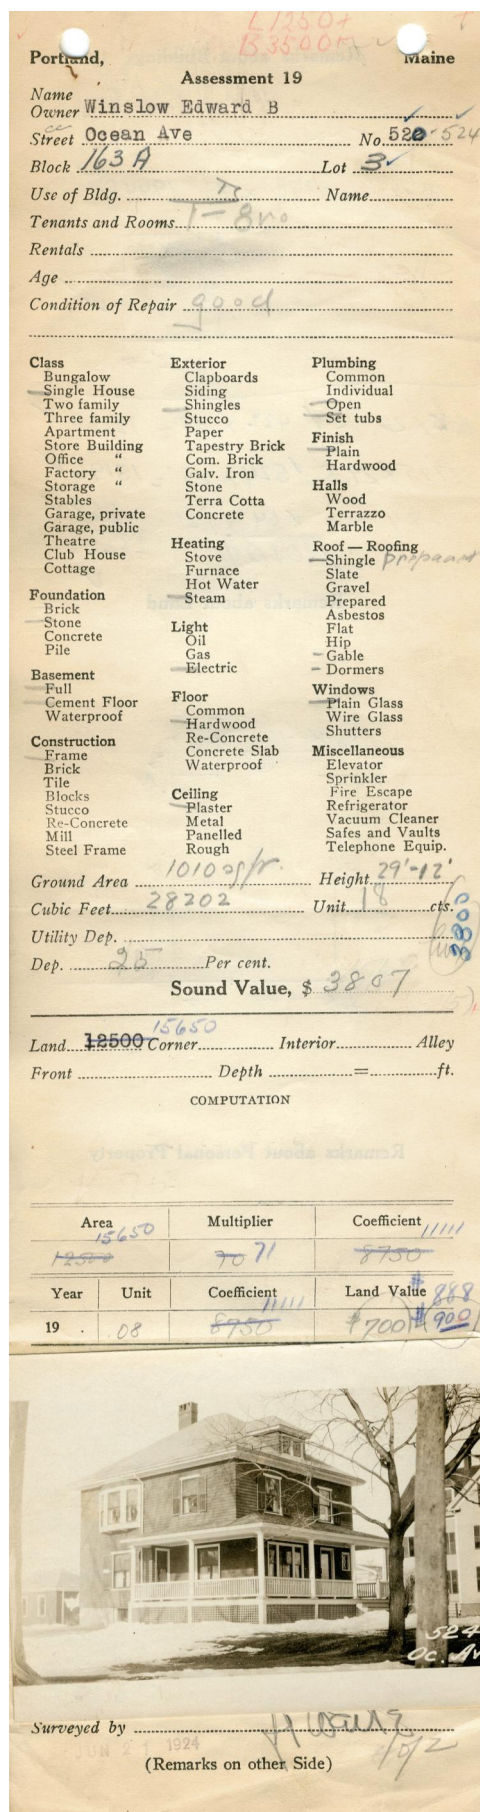 L 1250+
B 3500
Portland, Maine
Assessment 19
Name
Owner Winslow Edward B
Street Ocean Ave No. 520-524
Block 163 A Lot 3
Use of Bldg. Name
Tenants and Rooms 1-8
Rentals
Age
Condition of Repair good
Class
Bungalow
Single House
Two family
Three family
Apartment
Store Building
Office "
Factory "
Storage "
Stables
Garage, private
Garage, public
Theatre
Club House
Cottage
Foundation
Brick
Stone
Concrete
Pile
Basement
Full
Cement Floor
Waterproof
Construction
Frame
Brick
Tile
Blocks
Stucco
Re-Concrete
Mill
Steel Frame
Exterior
Clapboards
Siding
Shingles
Stucco
Paper
Tapestry Brick
Com. Brick
Galv. Iron
Stone
Terra Cotta
Concrete
Heating
Stove
Furnace
Hot Water
Steam
Light
Oil
Gas
Electric
Floor
Common
Hardwood
Re-Concrete
Concrete Slab
Waterproof
Ceiling
Plaster
Metal
Panelled
Rough
Plumbing
Common
Individual
Open
Set tubs
Finish
Plain
Hardwood
Halls
Wood
Terrazzo
Marble
Roof — Roofing
Shingle prepared
Slate
Gravel
Prepared
Asbestos
Flat
Hip
Gable
Dormers
Windows
Plain Glass
Wire Glass
Shutters
Miscellaneous
Elevator
Sprinkler
Fire Escape
Refrigerator
Vacuum Cleaner
Safes and Vaults
Telephone Equip.
Ground Area 1010 sq ft. Height 29'-12'
Cubic Feet 28202 Unit 18 cts.
Utility Dep.
3800
Dep. 25 Per cent.
Sound Value, $ 3807
15650
Land 12500 Corner Interior Alley
Front Depth = ft.
COMPUTATION
Area Multiplier Coefficient
15650 11111
12500 70 71 8750
Year Unit Coefficient Land Value
11111 $ 888
19 . 08 8750 $700 $900
524
Oc. Av
Surveyed by
JUN 21 1924
(Remarks on other Side)